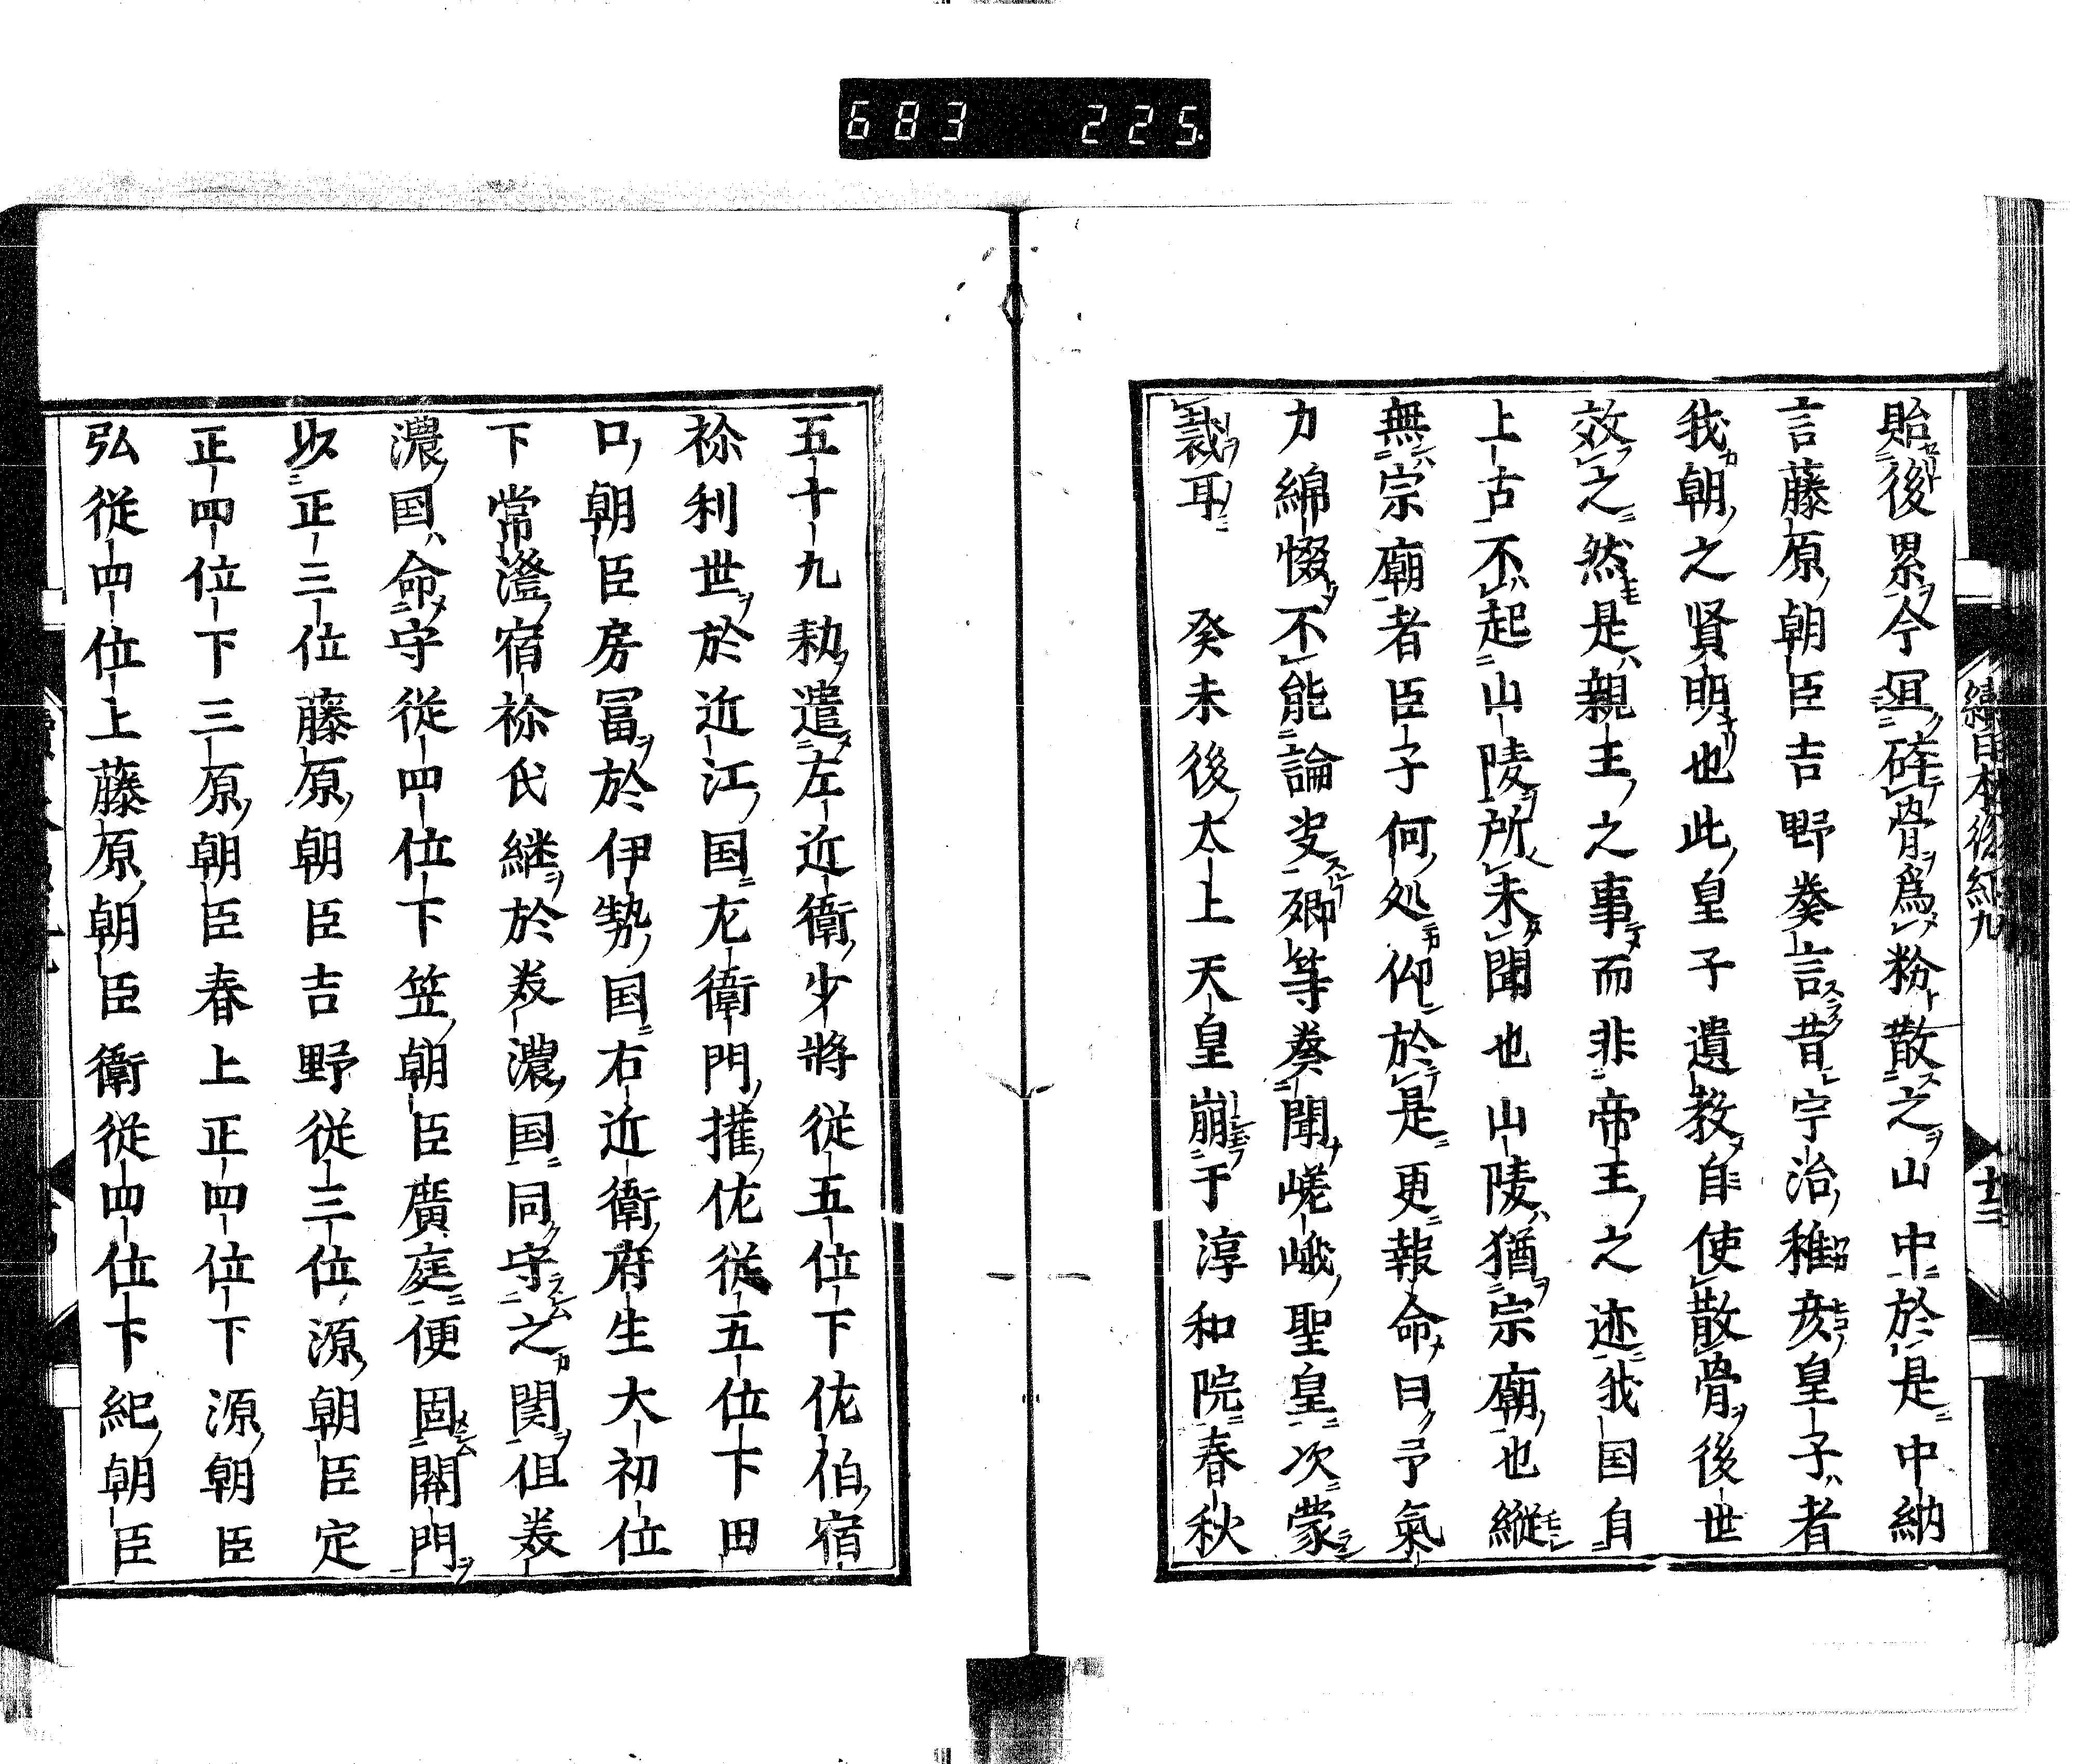 683 225
續日本後紀九
十三
貽後累今冝碎骨爲粉散之山中於是中納
言藤原朝臣吉野奏言昔宇治稚彦皇子者
我朝之賢明也此皇子遺教自使散骨後世
效之然是親王之事而非帝王之迹我国自
上古不起山陵所未聞也山陵猶宗廟也縦
無宗廟者臣子何処仰於是更報命曰予氣
力綿惙不能論㕝卿等奏聞嵯峨聖皇次蒙
裁耳　癸未後太上天皇崩于淳和院春秋
五十九勅遣左近衛少將従五位下佐伯宿
祢利世於近江国左衛門権佐従五位下田
口朝臣房冨於伊勢国右近衛府生大初位
下常澄宿祢氏継於美濃国同守之関但美
濃国命守従四位下笠朝臣廣庭便固関門
以正三位藤原朝臣吉野従三位源朝臣定
正四位下三原朝臣春上正四位下源朝臣
弘従四位上藤原朝臣衛従四位下紀朝臣